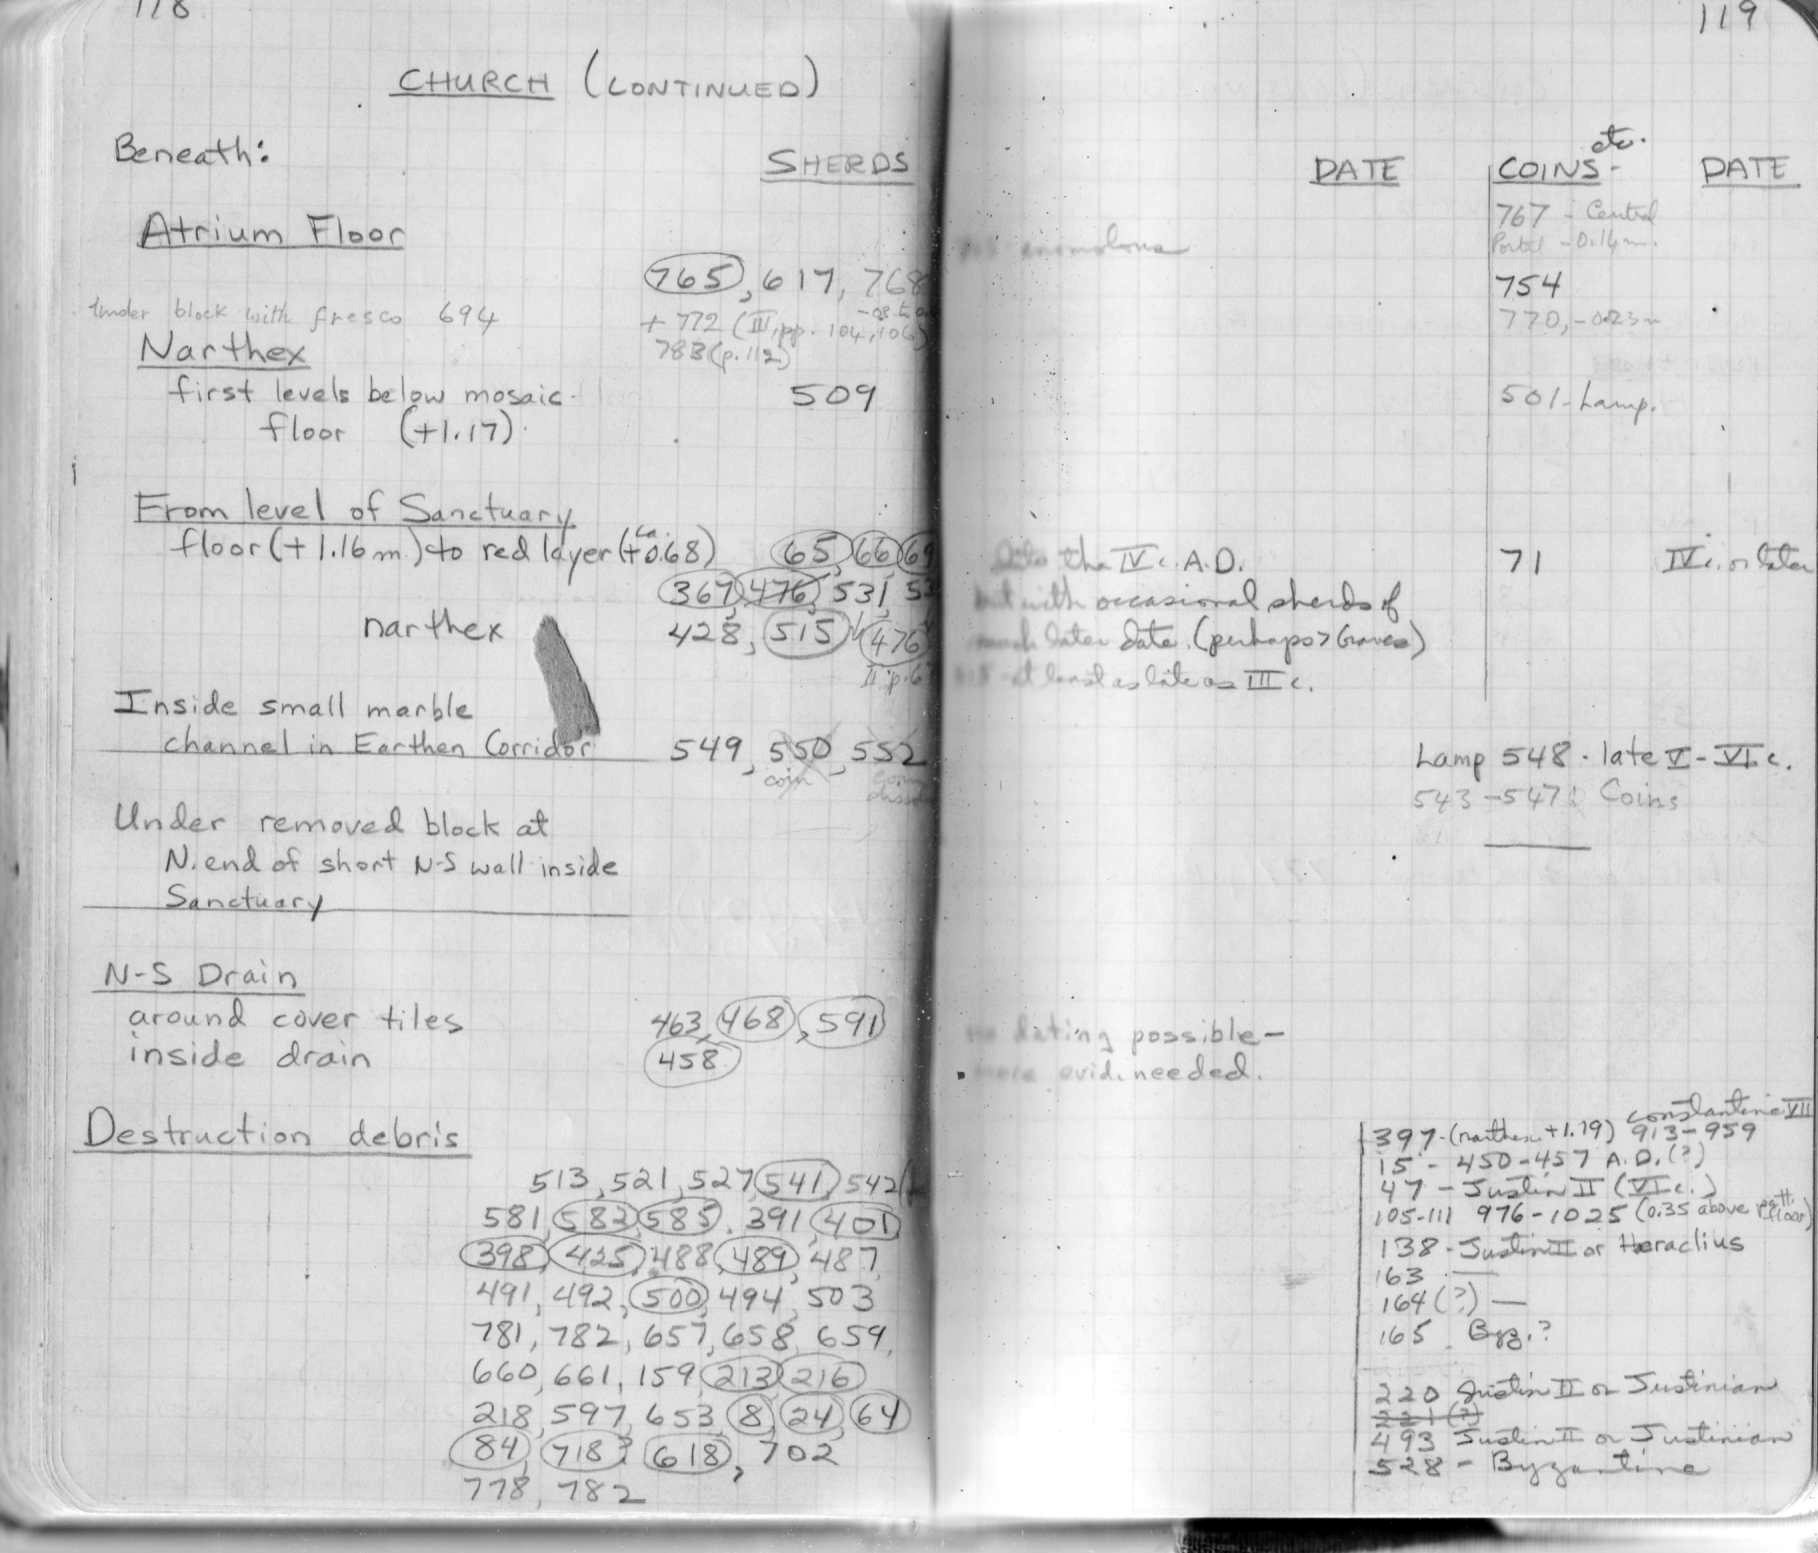 118
CHURCH (CONTINUED)
Beneath:
SHERDS
Atrium Floor
765, 617, 768
Under block with fresco 694
+ 772 (III, pp. 104, 106)
783 (p. 112)
Narthex
first levels below mosaic
509
floor (+1.17)
From level of Sanctuary
floor (+1.16 m.) to red layer (ca. +0.68)
65, 66, 69
367, 476, 531,
narthex
428, 515, 476
II p.
Inside small marble
channel in Earthen Corridor
549, 550, 552
coin
Under removed block at
N. end of short N-S wall inside
Sanctuary
N-S Drain
around cover tiles
463, 468, 591
inside drain
458
Destruction debris
513, 521, 527, 541, 542
581, 582, 585, 391, 401
398, 425, 488, 489, 487,
491, 492, 500, 494, 503
781, 782, 657, 658, 659,
660, 661, 159, 213, 216
218, 597, 653, 8, 24, 64
84, 718?, 618, 702
778, 782
119
DATE
COINS etc.
DATE
767 - Central
Portal -0.14m.
anomolous
754
770, -0.23m
501 - Lamp.
IV c. A.D.
71
IV c. or later
but with occasional sherds of
much later date. (perhaps > Graves)
at least as late as III c.
Lamp 548 - late V - VI c.
543 - 547 Coins
no dating possible -
more evid. needed.
Constantine VII
397 - (narthex +1.19) 913-959
15 - 450-457 A.D.(?)
47 - Justin II (VI c.)
105-111 976-1025 (0.35 above floor)
138 - Justin II or Heraclius
163 —
164 (?) —
165 Byz.?
220 Justin II or Justinian
221 (?)
493 Justin II or Justinian
528 - Byzantine